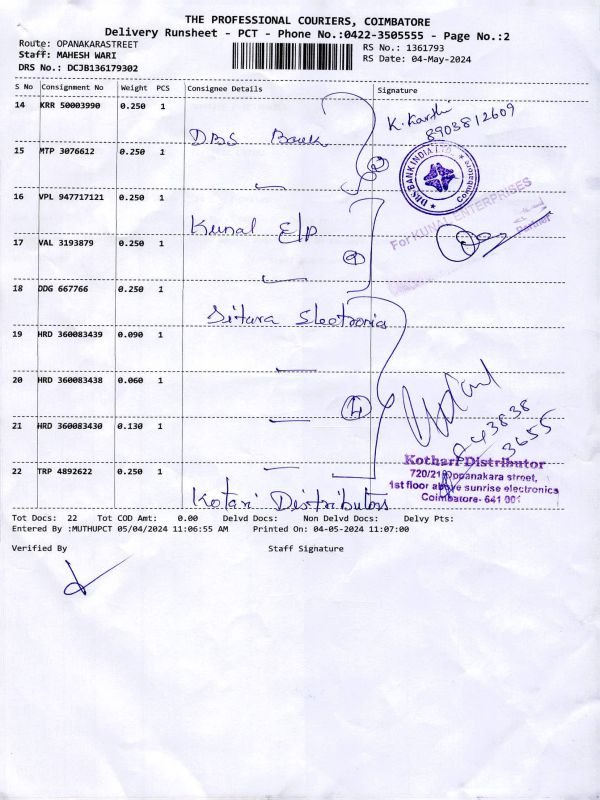 THE PROFESSIONAL COURIERS, COIMBATORE
Delivery Runsheet - PCT - Phone No.:0422-3505555 - Page No.:2
Route: OPANAKARASTREET
Staff: MAHESH WARI
DRS No.: DCJB136179302
RS No.: 1361793
RS Date: 04-May-2024
S No Consignment No Weight PCS Consignee Details Signature
14 KRR 50003990 0.250 1
K. Karthi
8903812609
DBS Bank
15 MTP 3076612 0.250 1
2
DBS BANK INDIA LTD.
Coimbatore
16 VPL 947717121 0.250 1
Kunal E/P
For KUNAL ENTERPRISES
Partner
17 VAL 3193879 0.250 1
18 DDG 667766 0.250 1
Sitara Electronics
19 HRD 360083439 0.090 1
20 HRD 360083438 0.060 1
4
21 HRD 360083430 0.130 1
843838
3655
22 TRP 4892622 0.250 1
Kotari Distributors
Kothari Distributor
720/21 Oppanakara street,
1st floor above sunrise electronics
Coimbatore- 641 001
Tot Docs: 22 Tot COD Amt: 0.00 Delvd Docs: Non Delvd Docs: Delvy Pts:
Entered By :MUTHUPCT 05/04/2024 11:06:55 AM Printed On: 04-05-2024 11:07:00
Verified By Staff Signature